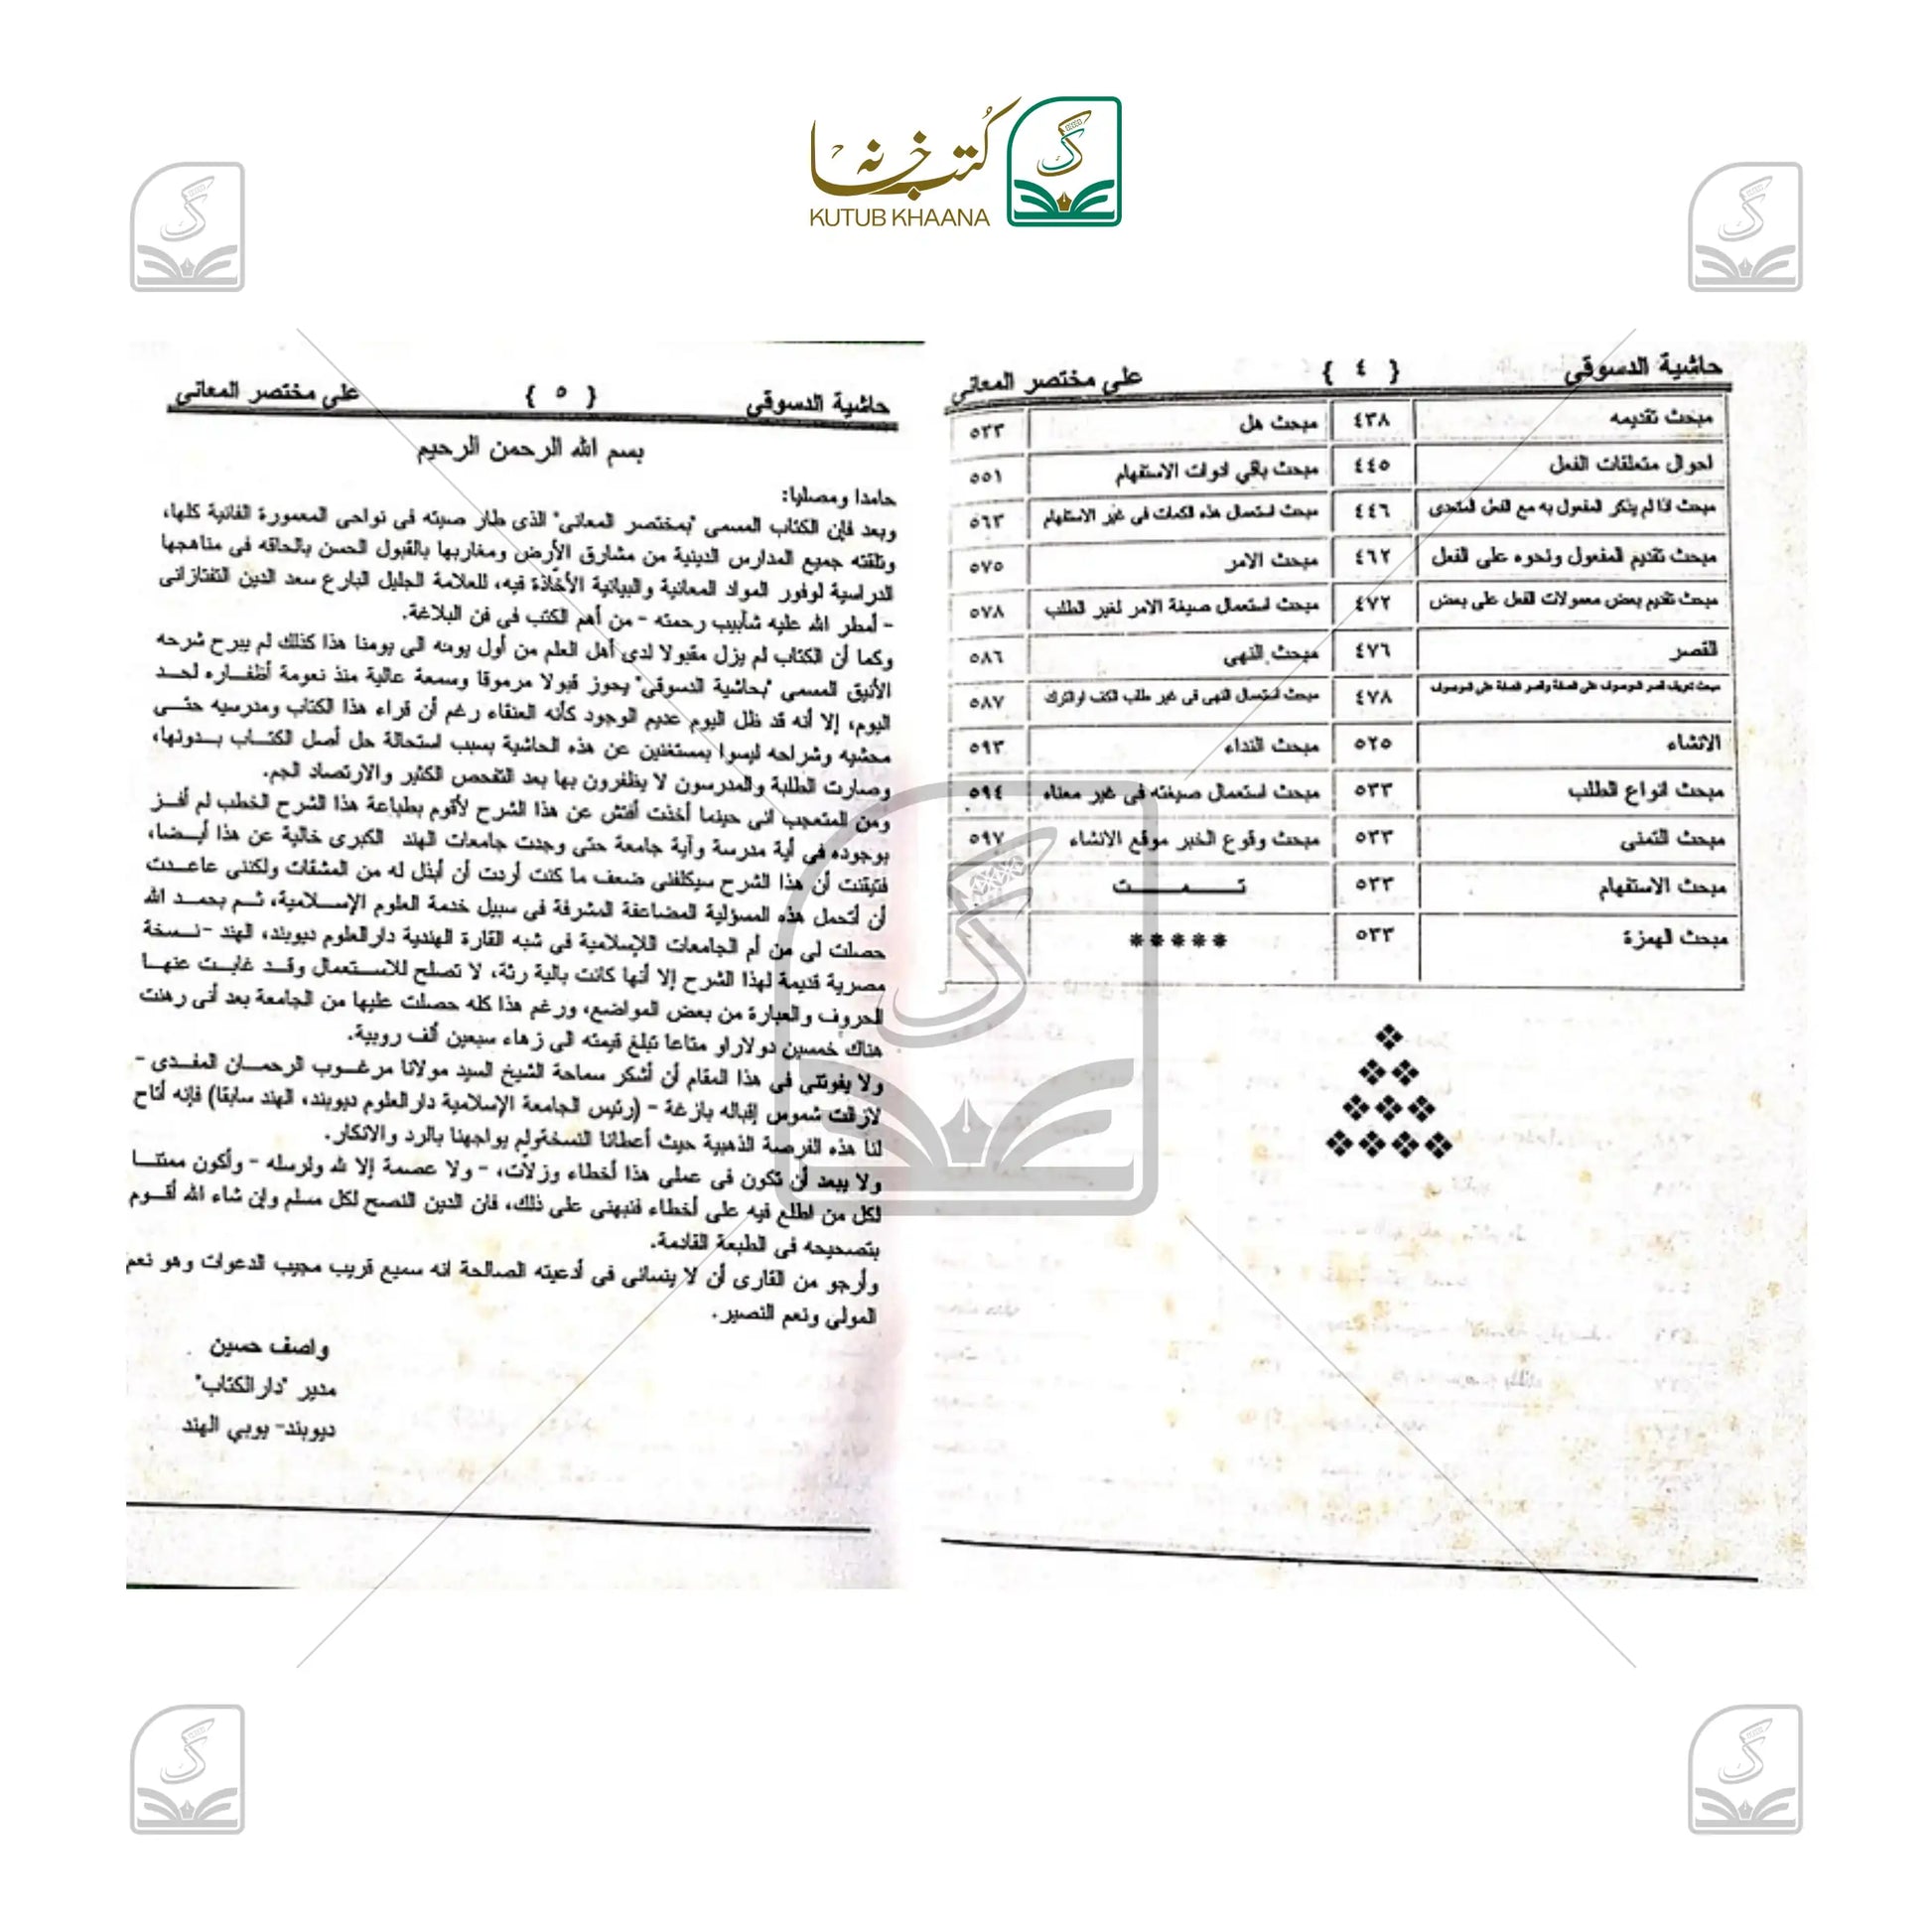 كتب خانه
KUTUB KHAANA
حاشية الدسوقي { ٤ } على مختصر المعاني
مبحث تقديمه ٤٣٨ مبحث هل ٥٣٣
احوال متعلقات الفعل ٤٤٥ مبحث باقي ادوات الاستفهام ٥٥١
مبحث اذا لم يذكر المفعول به مع الفعل المتعدى ٤٤٦ مبحث استعمال هذه الكمات فى غير الاستفهام ٥٦٣
مبحث تقديم المفعول ونحوه على الفعل ٤٦٢ مبحث الامر ٥٧٥
مبحث تقديم بعض معمولات الفعل على بعض ٤٧٢ مبحث استعمال صيغة الامر لغير الطلب ٥٧٨
القصر ٤٧٦ مبحث النهى ٥٨٦
مبحث تعريف قصر الموصوف على الصفة وقصر الصفة على الموصوف ٤٧٨ مبحث استعمال النهى فى غير طلب الكف او الترك ٥٨٧
الانشاء ٥٢٥ مبحث النداء ٥٩٣
مبحث انواع الطلب ٥٣٣ مبحث استعمال صيغته فى غير معناه ٥٩٤
مبحث التمنى ٥٣٣ مبحث وقوع الخبر موقع الانشاء ٥٩٧
مبحث الاستفهام ٥٣٣ تـــمـــت
مبحث الهمزة ٥٣٣ *****
حاشية الدسوقي { ٥ } على مختصر المعاني
بسم الله الرحمن الرحيم
حامدا ومصليا:
وبعد فإن الكتاب المسمى "بمختصر المعانى" الذى طار صيته فى نواحى المعمورة الفانية كلها،
وتلقته جميع المدارس الدينية من مشارق الأرض ومغاربها بالقبول الحسن بالحاقه فى مناهجها
الدراسية لوفور المواد المعانية والبيانية الأخّاذة فيه، للعلامة الجليل البارع سعد الدين التفتازانى
- أمطر الله عليه شآبيب رحمته - من أهم الكتب فى فن البلاغة.
وكما أن الكتاب لم يزل مقبولا لدى أهل العلم من أول يومنه الى يومنا هذا كذلك لم يبرح شرحه
الأنيق المسمى "بحاشية الدسوقى" يحوز قبولا مرموقا وسمعة عالية منذ نعومة أظفـاره لحـد
اليوم، إلا أنه قد ظل اليوم عديم الوجود كأنه العنقاء رغم أن قراء هذا الكتاب ومدرسيه حتـى
محشيه وشراحه ليسوا بمستغنين عن هذه الحاشية بسبب استحالة حل أصل الكتـاب بـدونها،
وصارت الطلبة والمدرسون لا يظفرون بها بعد التفحص الكثير والارتصاد الجم.
ومن المتعجب انى حينما أخذت أفتش عن هذا الشرح لأقوم بطباعة هذا الشرح الخطب لم أفـز
بوجوده فى أية مدرسة وآية جامعة حتى وجدت جامعات الهند الكبرى خالية عن هذا أيـضا،
فتيقنت أن هذا الشرح سيكلفنى ضعف ما كنت أردت أن أبذل له من المشقات ولكننى عاعـدت
أن أتحمل هذه المسؤلية المضاعفة المشرفة فى سبيل خدمة العلوم الإسـلامية، ثـم بحمـد الله
حصلت لى من أم الجامعات اللإسلامية فى شبه القارة الهندية دارالعلوم ديوبند، الهند -نـسخة
مصرية قديمة لهذا الشرح إلا أنها كانت بالية رثة، لا تصلح للاسـتعمال وقـد غابـت عنهـا
الحروف والعبارة من بعض المواضع، ورغم هذا كله حصلت عليها من الجامعة بعد أنى رهنت
هناك خمسين دولاراو متاعا تبلغ قيمته الى زهاء سبعين ألف روبية.
ولا يفوتنى فى هذا المقام أن أشكر سماحة الشيخ السيد مولانا مرغـوب الرحمـان المفـدى -
لازالت شموس إقباله بازغة - (رئيس الجامعة الإسلامية دارالعلوم ديوبند، الهند سابقا) فإنه أتاح
لنا هذه الفرصة الذهبية حيث أعطانا النسخةولم يواجهنا بالرد والانكار.
ولا يبعد أن تكون فى عملى هذا أخطاء وزلاّت، - ولا عصمة إلا لله ولرسله - وأكون ممتنـا
لكل من اطلع فيه على أخطاء فنبهنى على ذلك، فان الدين النصح لكل مسلم وإن شاء الله أقـوم
بتصحيحه فى الطبعة القادمة.
وأرجو من القارى أن لا ينسانى فى أدعيته الصالحة انه سميع قريب مجيب الدعوات وهو نعم
المولى ونعم النصير.
واصف حسين
مدير "دارالكتاب"
ديوبند- يوبي الهند